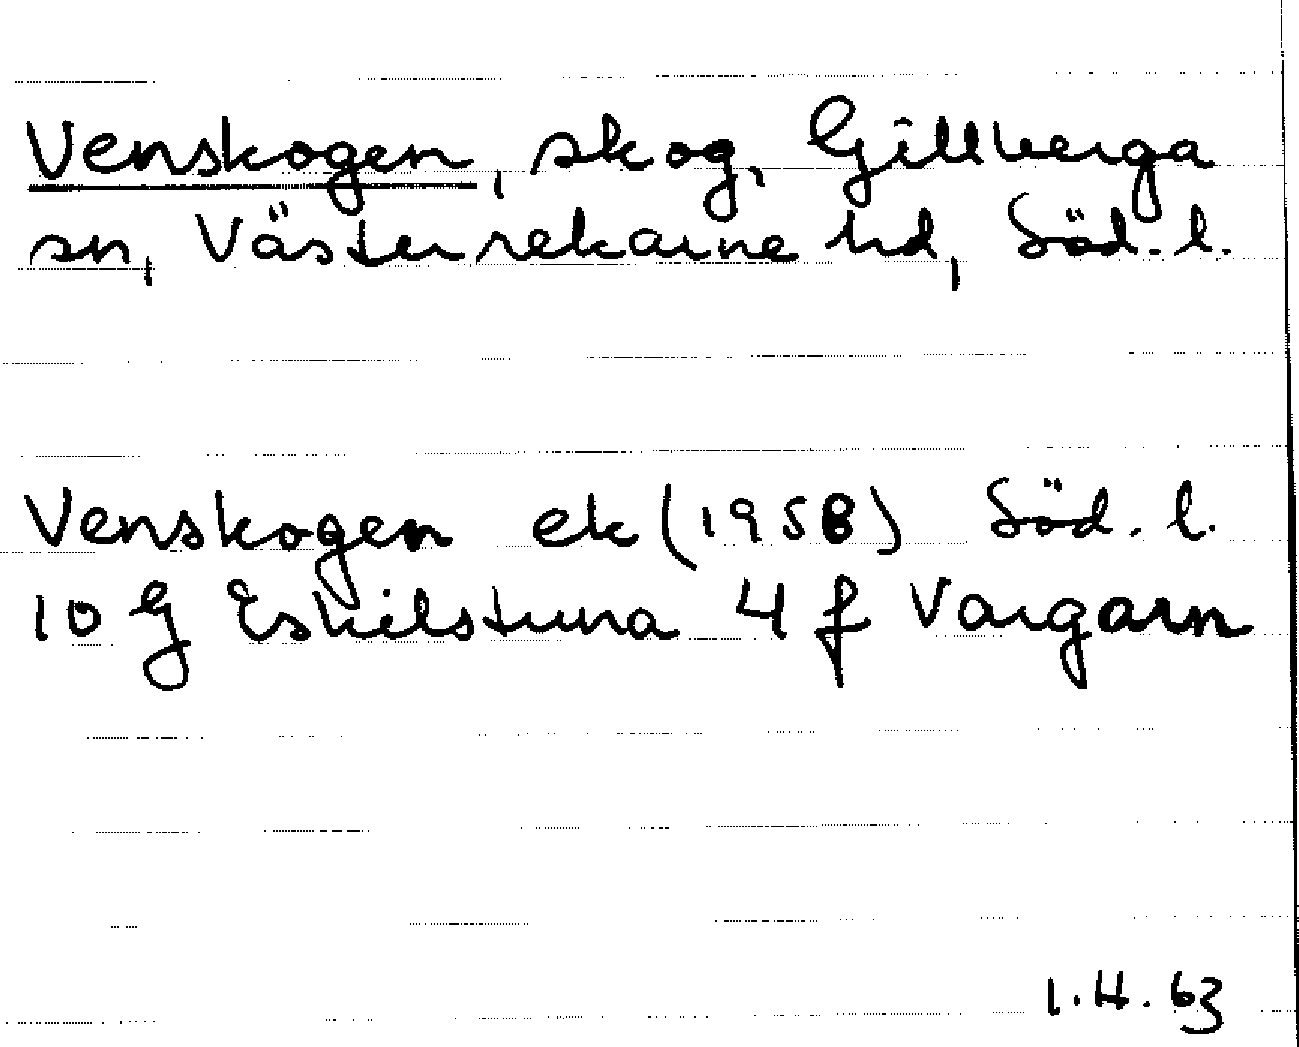 Venskogen, skog, Gillberga
sn, Västerrekarne hd, Söd. l.
Venskogen ek (1958) Söd. l.
10 G Eskilstuna 4 f Vargarn
1.4.63